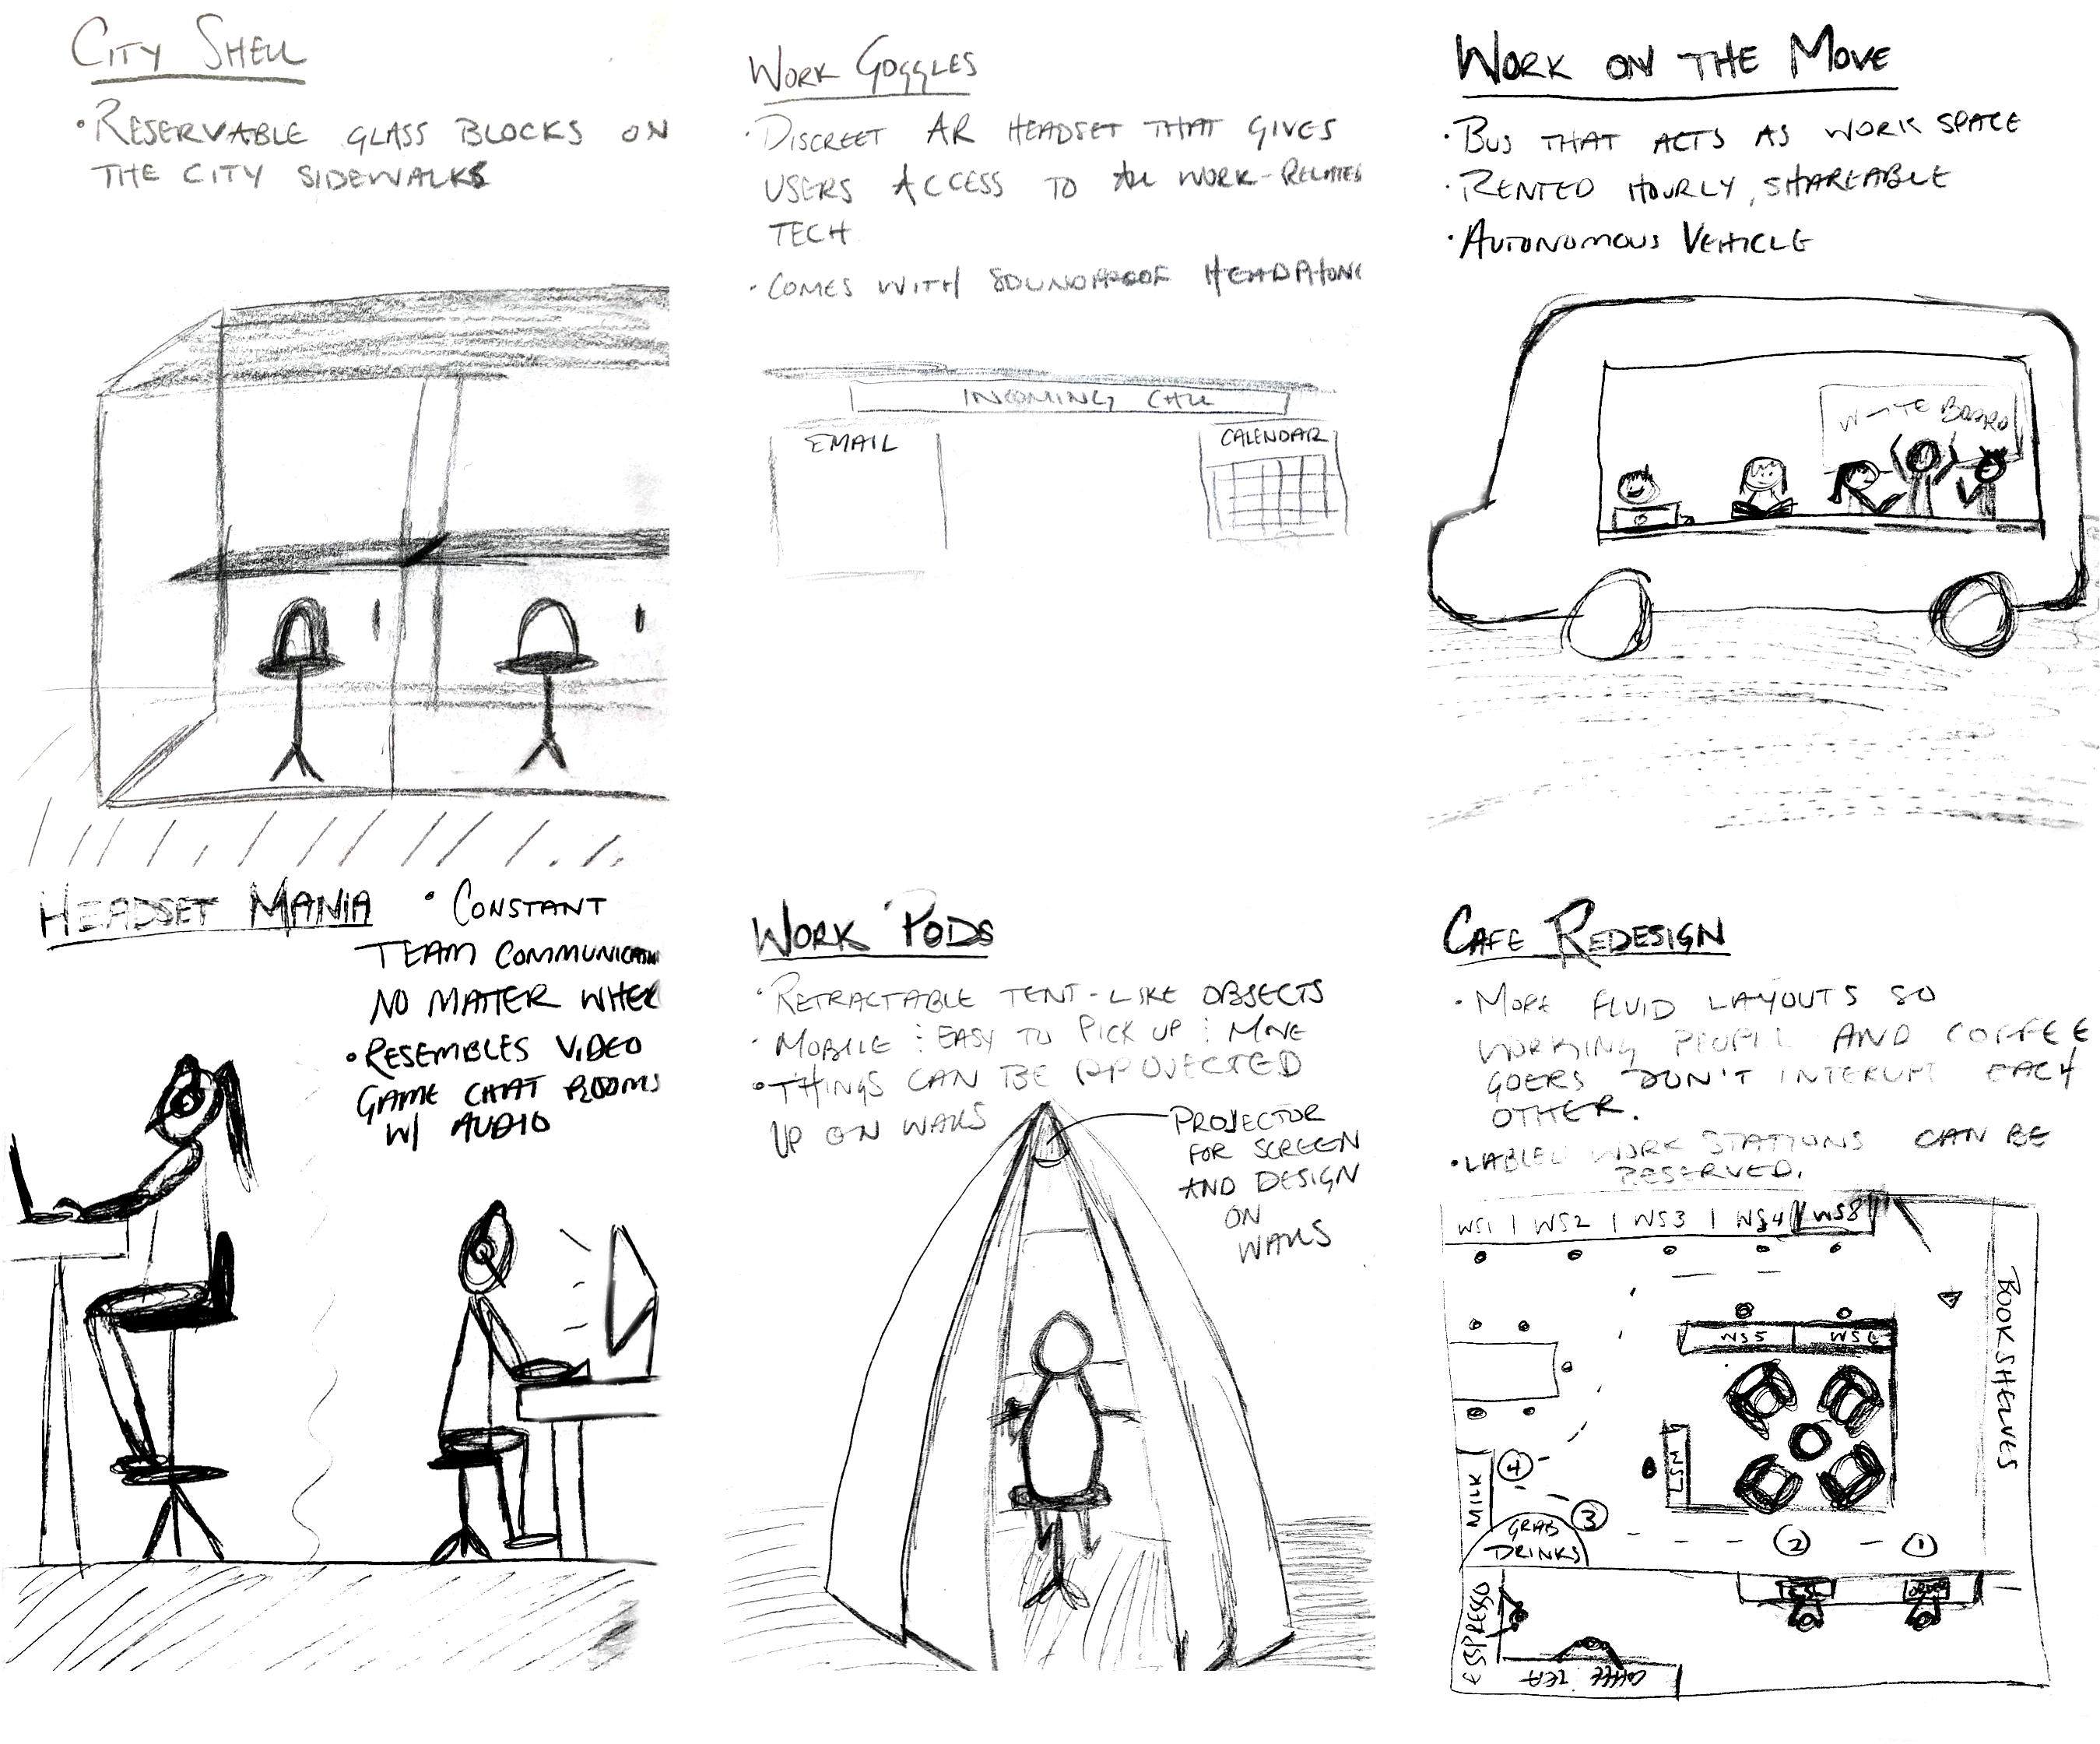 CITY SHELL
• RESERVABLE GLASS BLOCKS ON
THE CITY SIDEWALKS
WORK GOGGLES
• DISCREET AR HEADSET THAT GIVES
USERS ACCESS TO ALL WORK-RELATED
TECH
• COMES WITH SOUNDPROOF HEADPHONE
INCOMING CALL
EMAIL
CALENDAR
WORK ON THE MOVE
• BUS THAT ACTS AS WORK SPACE
• RENTED HOURLY, SHAREABLE
• AUTONOMOUS VEHICLE
WHITE BOARD
HEADSET MANIA
• CONSTANT
TEAM COMMUNICATION
NO MATTER WHER
• RESEMBLES VIDEO
GAME CHAT ROOMS
W/ AUDIO
WORK PODS
• RETRACTABLE TENT-LIKE OBJECTS
• MOBILE : EASY TO PICK UP : MOVE
• THINGS CAN BE PROJECTED
UP ON WALLS
PROJECTOR
FOR SCREEN
AND DESIGN
ON
WALLS
CAFE REDESIGN
• MORE FLUID LAYOUTS SO
WORKING PEOPLE AND COFFEE
GOERS DON'T INTERUPT EACH
OTHER.
• LABLED WORK STATIONS CAN BE
RESERVED.
WS1 | WS2 | WS3 | WS4 WS8
BOOKSHELVES
WS5 WS6
WS7
MILK
4
3
GRAB
DRINKS
2
1
ORDER
ESPRESSO
COFFEE : TEA